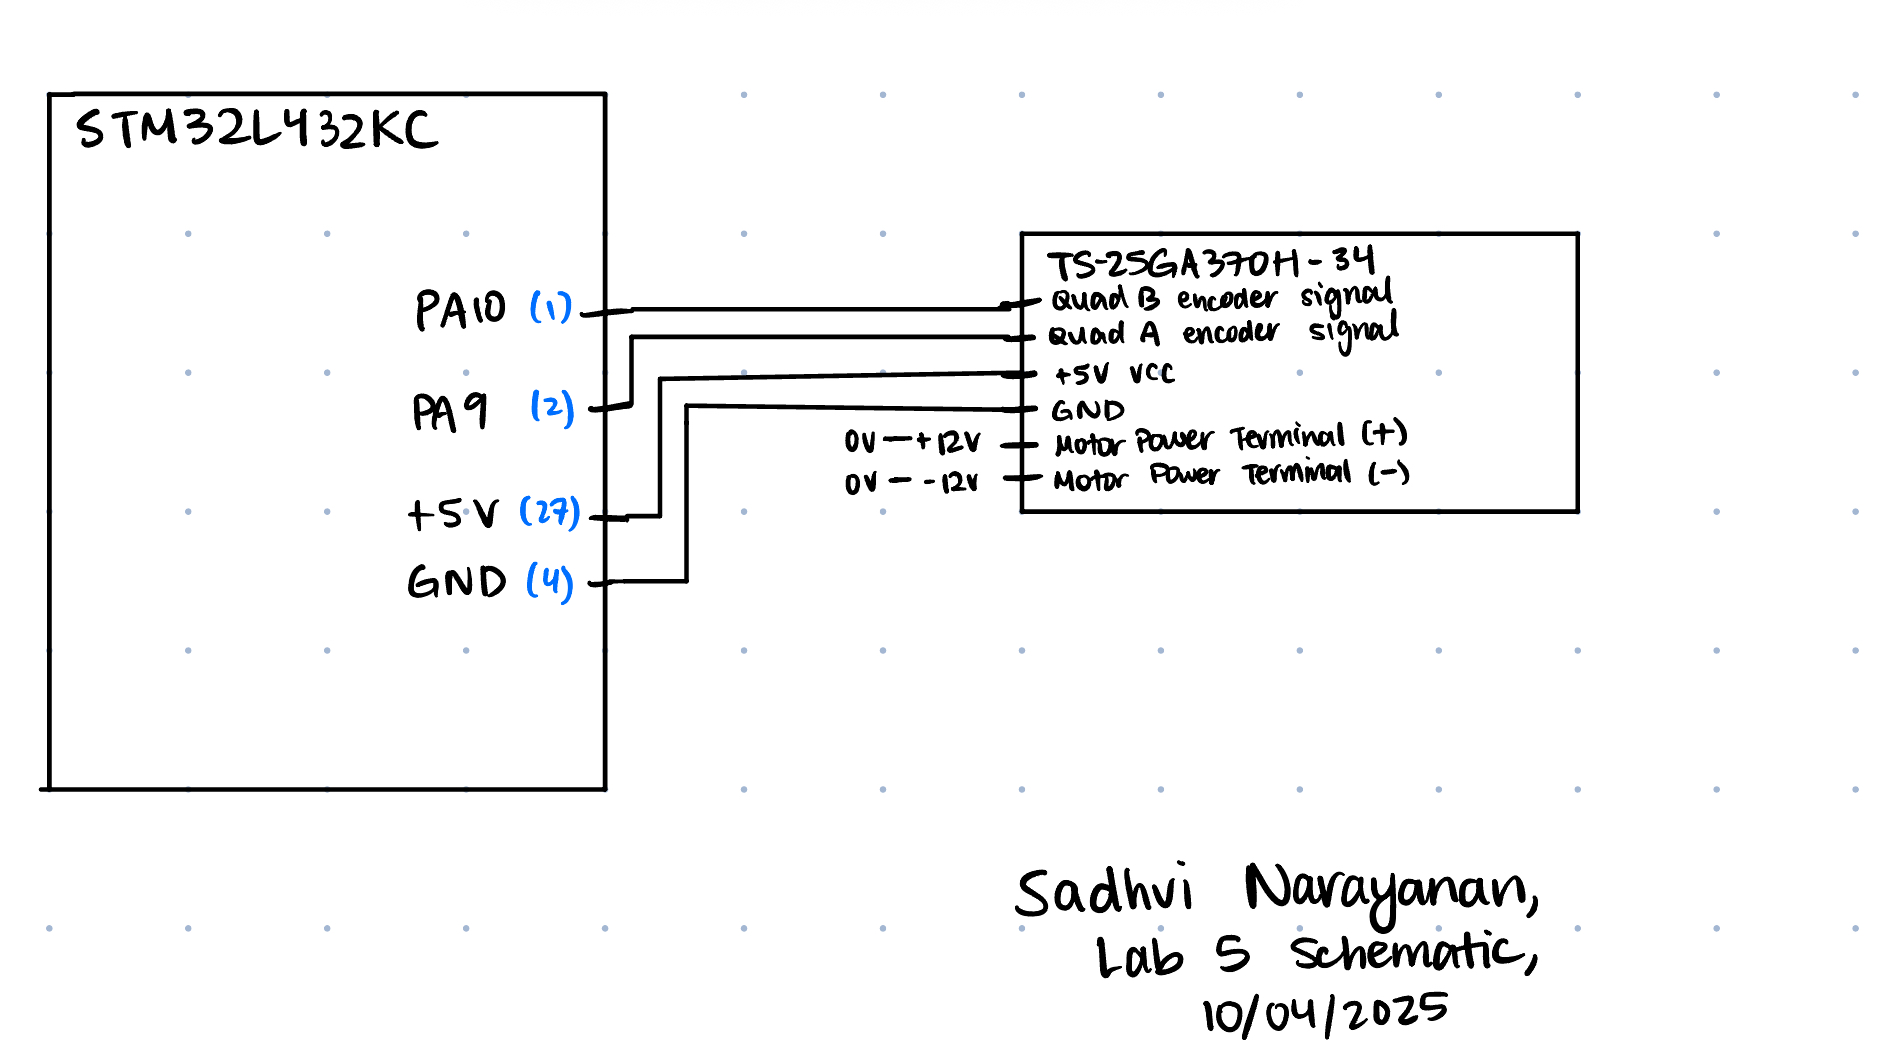 STM32L432KC
PA10 (1)
PA9 (2)
+5V (27)
GND (4)
TS-25GA370H-34
Quad B encoder signal
Quad A encoder signal
+5V VCC
GND
0V - +12V Motor Power Terminal (+)
0V - -12V Motor Power Terminal (-)
Sadhvi Narayanan,
Lab 5 Schematic,
10/04/2025